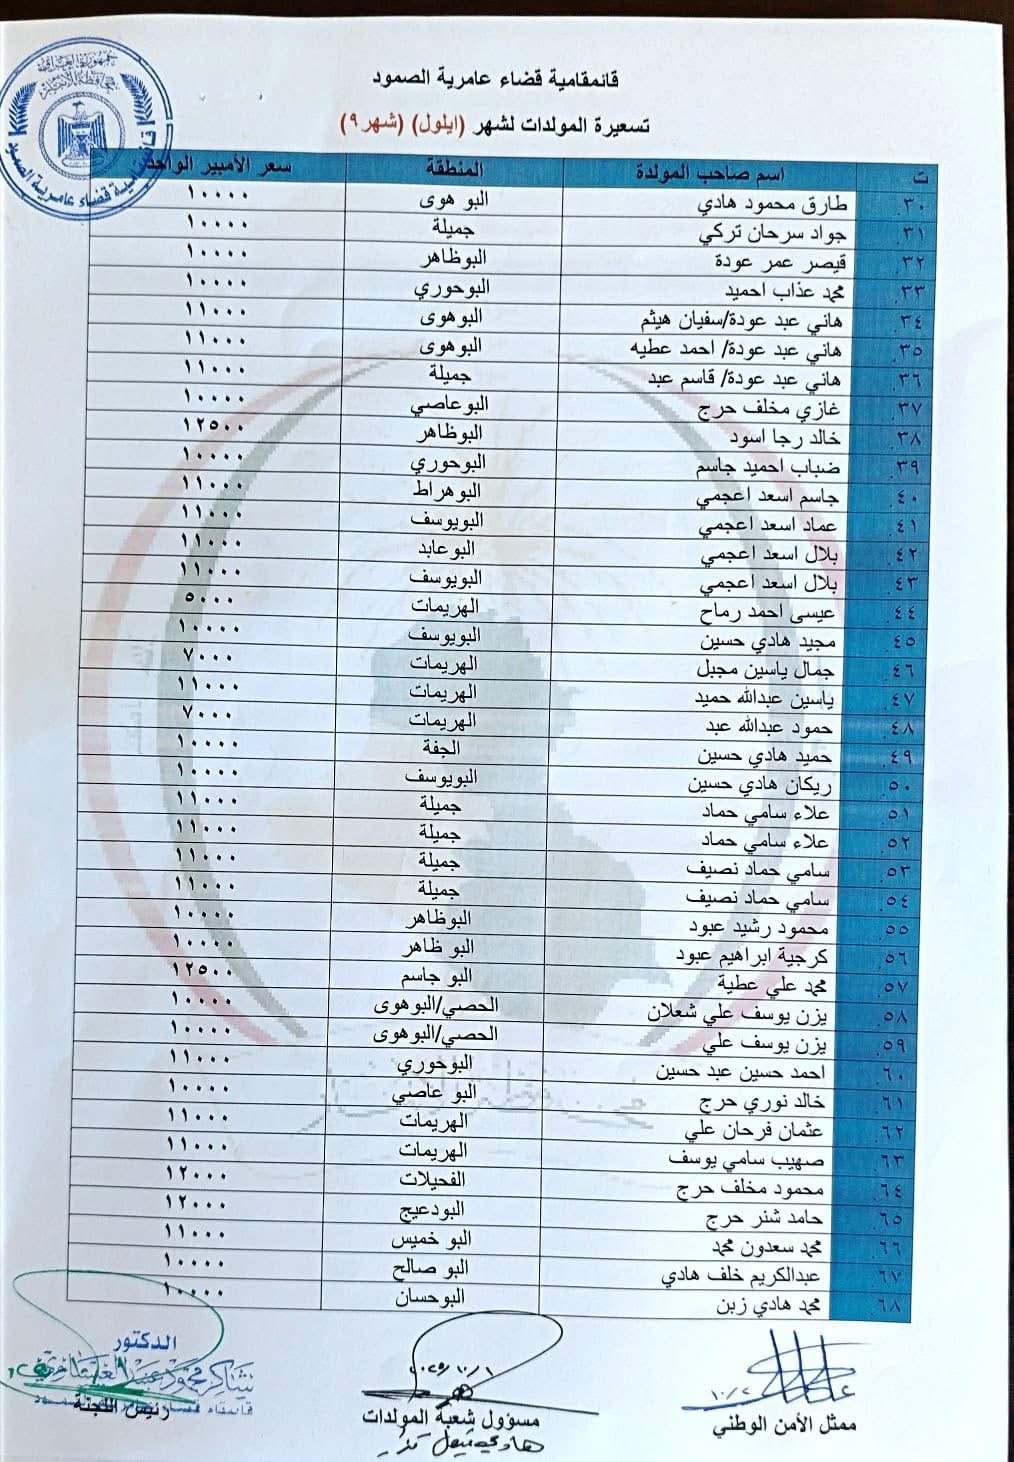 جمهورية العراق
محافظة الأنبار
قائمقامية قضاء عامرية الصمود
قائمقامية قضاء عامرية الصمود
تسعيرة المولدات لشهر (ايلول) (شهر٩)
ت اسم صاحب المولدة المنطقة سعر الأمبير الواحد
٣٠. طارق محمود هادي البو هوى ١٠٠٠٠
٣١. جواد سرحان تركي جميلة ١٠٠٠٠
٣٢. قيصر عمر عودة البوظاهر ١٠٠٠٠
٣٣. محمد عذاب احميد البوحوري ١٠٠٠٠
٣٤. هاني عبد عودة/سفيان هيثم البوهوى ١١٠٠٠
٣٥. هاني عبد عودة/ احمد عطيه البوهوى ١١٠٠٠
٣٦. هاني عبد عودة/ قاسم عبد جميلة ١١٠٠٠
٣٧. غازي مخلف حرج البوعاصي ١٠٠٠٠
٣٨. خالد رجا اسود البوظاهر ١٢٥٠٠
٣٩. ضباب احميد جاسم البوحوري ١٠٠٠٠
٤٠. جاسم اسعد اعجمي البوهراط ١١٠٠٠
٤١. عماد اسعد اعجمي البويوسف ١١٠٠٠
٤٢. بلال اسعد اعجمي البوعابد ١١٠٠٠
٤٣. بلال اسعد اعجمي البويوسف ١١٠٠٠
٤٤. عيسى احمد رماح الهريمات ٥٠٠٠
٤٥. مجيد هادي حسين البويوسف ١٠٠٠٠
٤٦. جمال ياسين مجبل الهريمات ٧٠٠٠
٤٧. ياسين عبدالله حميد الهريمات ١١٠٠٠
٤٨. حمود عبدالله عبد الهريمات ٧٠٠٠
٤٩. حميد هادي حسين الجفة ١٠٠٠٠
٥٠. ريكان هادي حسين البويوسف ١٠٠٠٠
٥١. علاء سامي حماد جميلة ١١٠٠٠
٥٢. علاء سامي حماد جميلة ١١٠٠٠
٥٣. سامي حماد نصيف جميلة ١١٠٠٠
٥٤. سامي حماد نصيف جميلة ١١٠٠٠
٥٥. محمود رشيد عبود البوظاهر ١٠٠٠٠
٥٦. كرجية ابراهيم عبود البو ظاهر ١٠٠٠٠
٥٧. محمد علي عطية البو جاسم ١٢٥٠٠
٥٨. يزن يوسف علي شعلان الحصي/البوهوى ١٠٠٠٠
٥٩. يزن يوسف علي الحصي/البوهوى ١٠٠٠٠
٦٠. احمد حسين عبد حسين البوحوري ١١٠٠٠
٦١. خالد نوري حرج البو عاصي ١٠٠٠٠
٦٢. عثمان فرحان علي الهريمات ١١٠٠٠
٦٣. صهيب سامي يوسف الهريمات ١١٠٠٠
٦٤. محمود مخلف حرج الفحيلات ١٢٠٠٠
٦٥. حامد شنر حرج البودعيج ١٢٠٠٠
٦٦. محمد سعدون محمد البو خميس ١١٠٠٠
٦٧. عبدالكريم خلف هادي البو صالح ١٠٠٠٠
٦٨. محمد هادي زبن البوحسان ١٠٠٠٠
ممثل الأمن الوطني
٢٠٢٥/١٠/١
مسؤول شعبة المولدات
الدكتور
شاكر محمود عبد
رئيس اللجنة